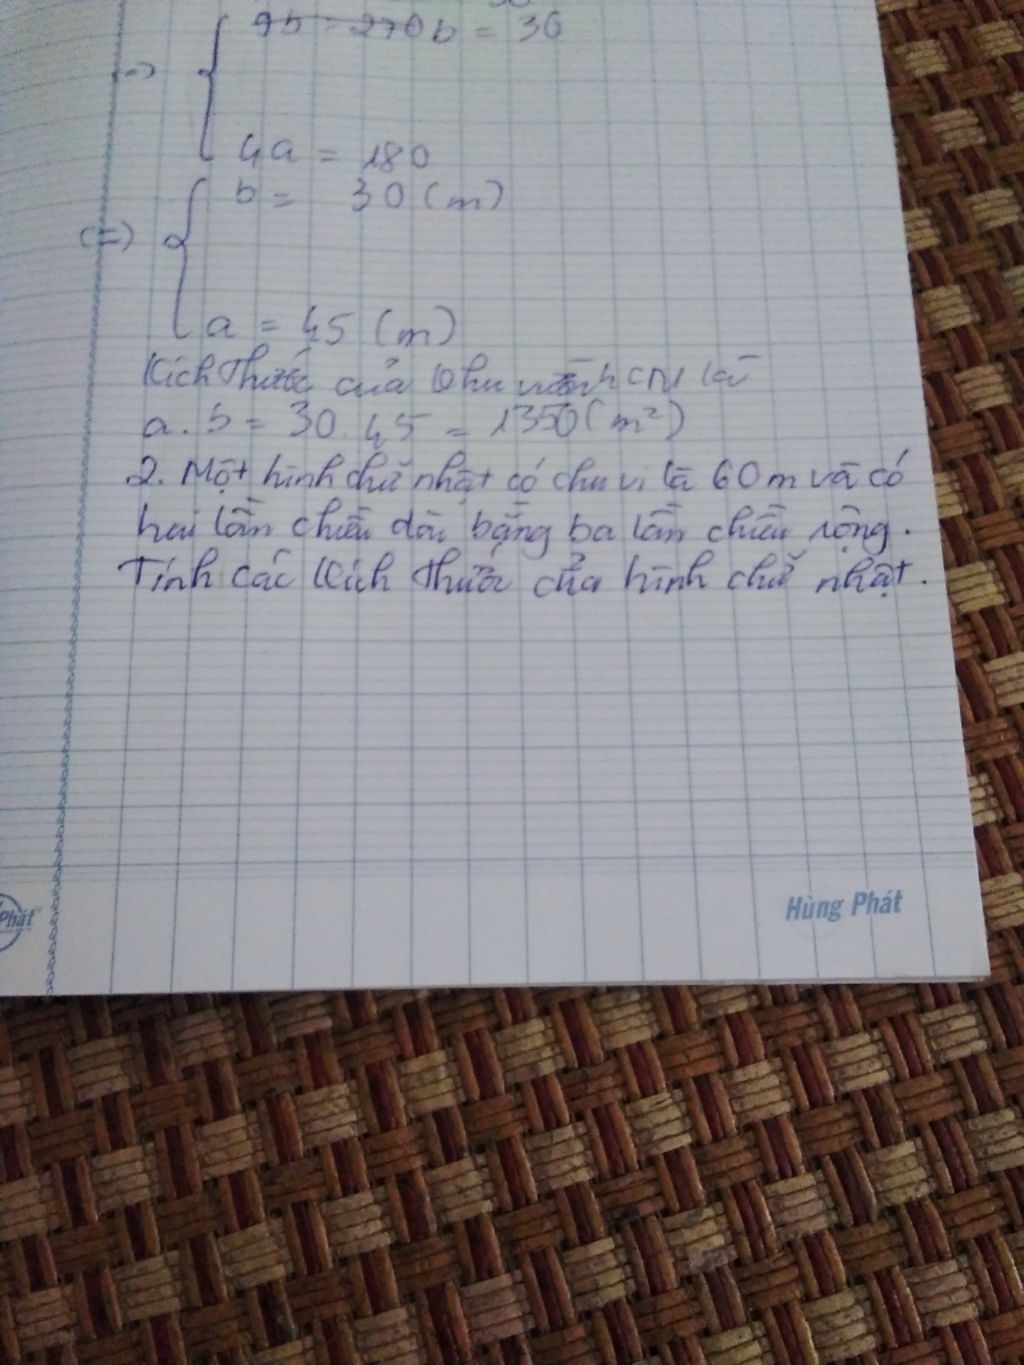 9b = 270 b = 30
4a = 180
b = 30 (m)
(=)
a = 45 (m)
Kích thước của khu vườn HCN là
a. b = 30 45 = 1350 (m²)
2. Một hình chữ nhật có chu vi là 60 m và có
hai lần chiều dài bằng ba lần chiều rộng.
Tính các kích thước của hình chữ nhật.
Phát
Hùng Phát